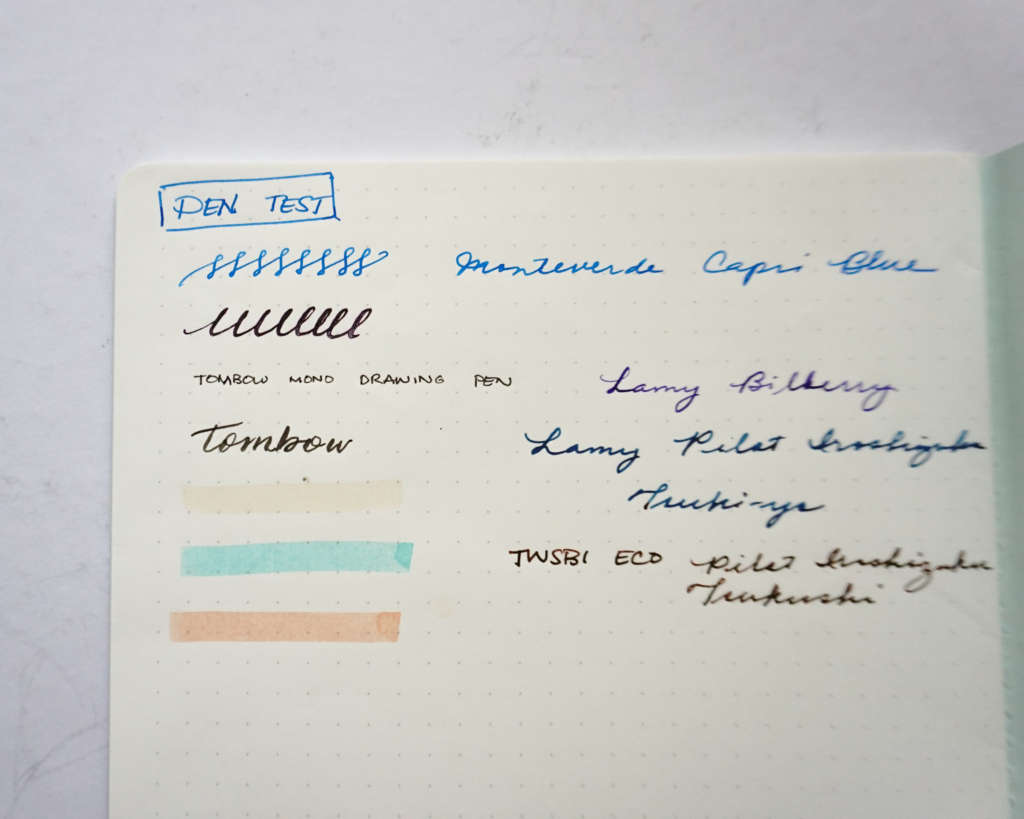 PEN TEST
Monteverde Capri Blue
TOMBOW MONO DRAWING PEN
Lamy Bilberry
Tombow
Lamy Pilot Iroshizuku
Tsuki-yo
TWSBI ECO Pilot Iroshizuku
Tsukushi